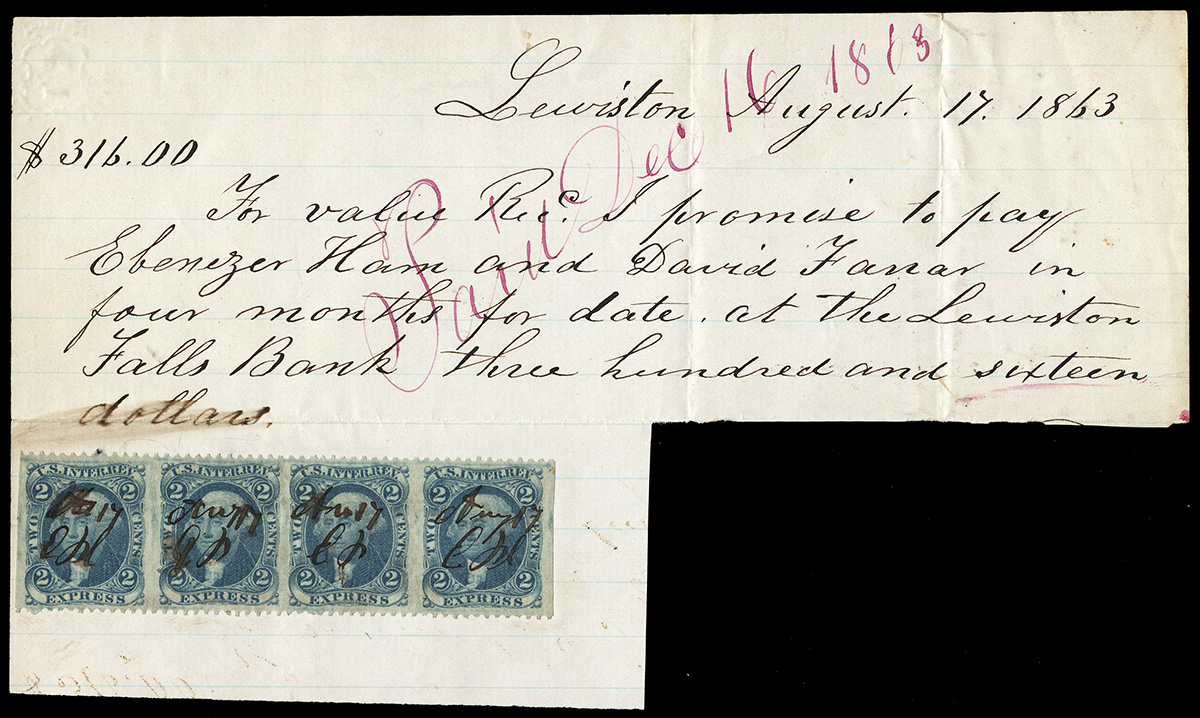 Lewiston August. 17. 1863
Paid Dec 16 1863
$ 316.00
For value Rec. I promise to pay
Ebenezer Ham and David Farrar in
four months for date. at the Lewiston
Falls Bank three hundred and sixteen
dollars.
U.S. INTER. REV. U.S. INTER. REV. U.S. INTER. REV. U.S. INTER. REV.
2 2 2 2 2 2 2 2
TWO CENTS TWO CENTS TWO CENTS TWO CENTS
Aug 17 Aug 17 Aug 17
2 2 2 2 2 2 2 2
EXPRESS EXPRESS EXPRESS EXPRESS